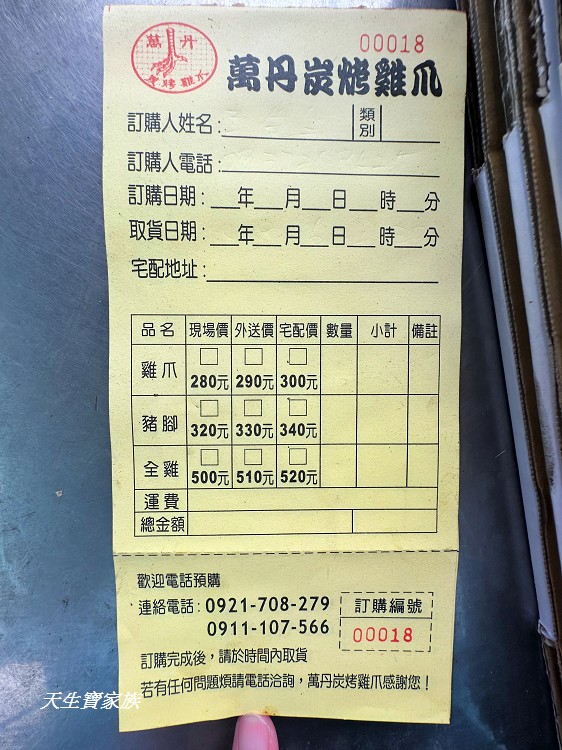 萬丹
炭烤雞爪
00018
萬丹炭烤雞爪
訂購人姓名: 類別
訂購人電話:
訂購日期: 年 月 日 時 分
取貨日期: 年 月 日 時 分
宅配地址:
品名 現場價 外送價 宅配價 數量 小計 備註
雞爪 280元 290元 300元
豬腳 320元 330元 340元
全雞 500元 510元 520元
運費
總金額
歡迎電話預購
連絡電話:0921-708-279
0911-107-566
訂購編號
00018
訂購完成後，請於時間內取貨
若有任何問題煩請電話洽詢，萬丹炭烤雞爪感謝您！
天生寶家族